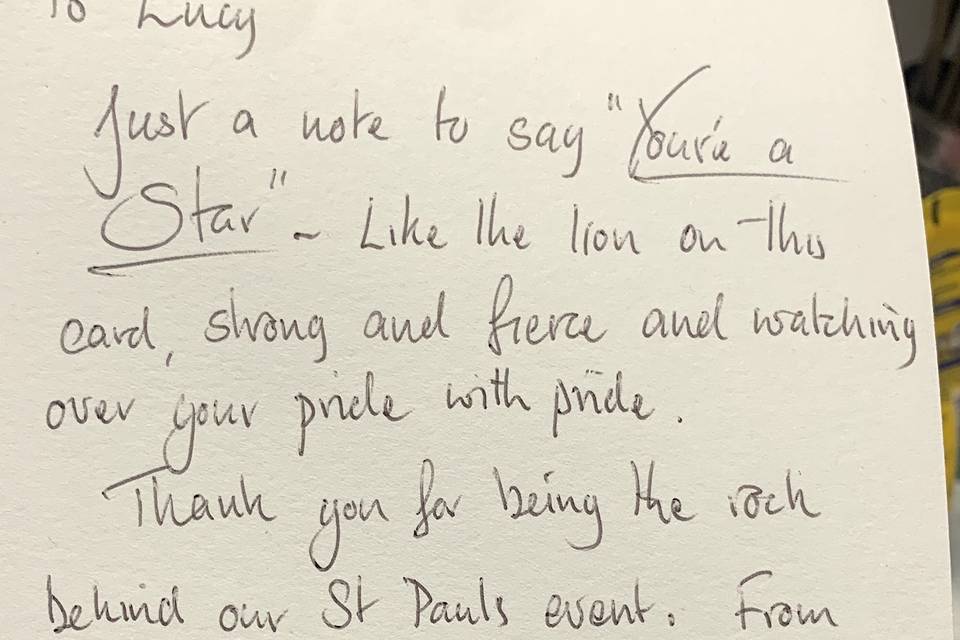 To Lucy
Just a note to say "You're a
Star" - Like the lion on this
card, strong and fierce and watching
over your pride with pride.
Thank you for being the rock
behind our St Pauls event. From